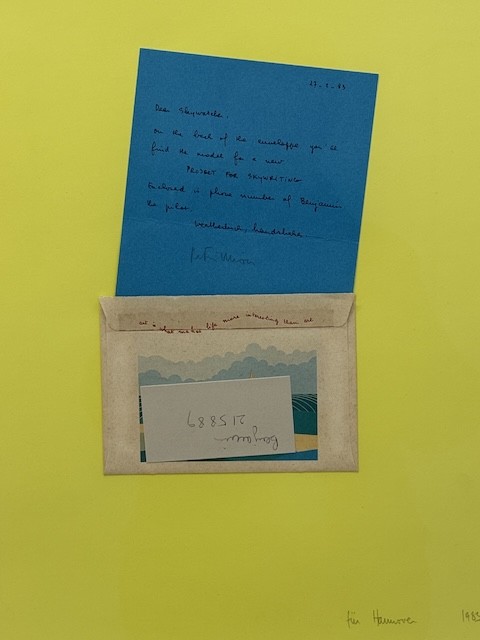 Dear Skywatcher,
on the back of the envelope you'll
find the model for a new
PROJECT FOR SKYWRITING
Enclosed is phone number of Benjamin
the pilot.
art is what makes life more interesting than art
benjamin
für Hannover 1983